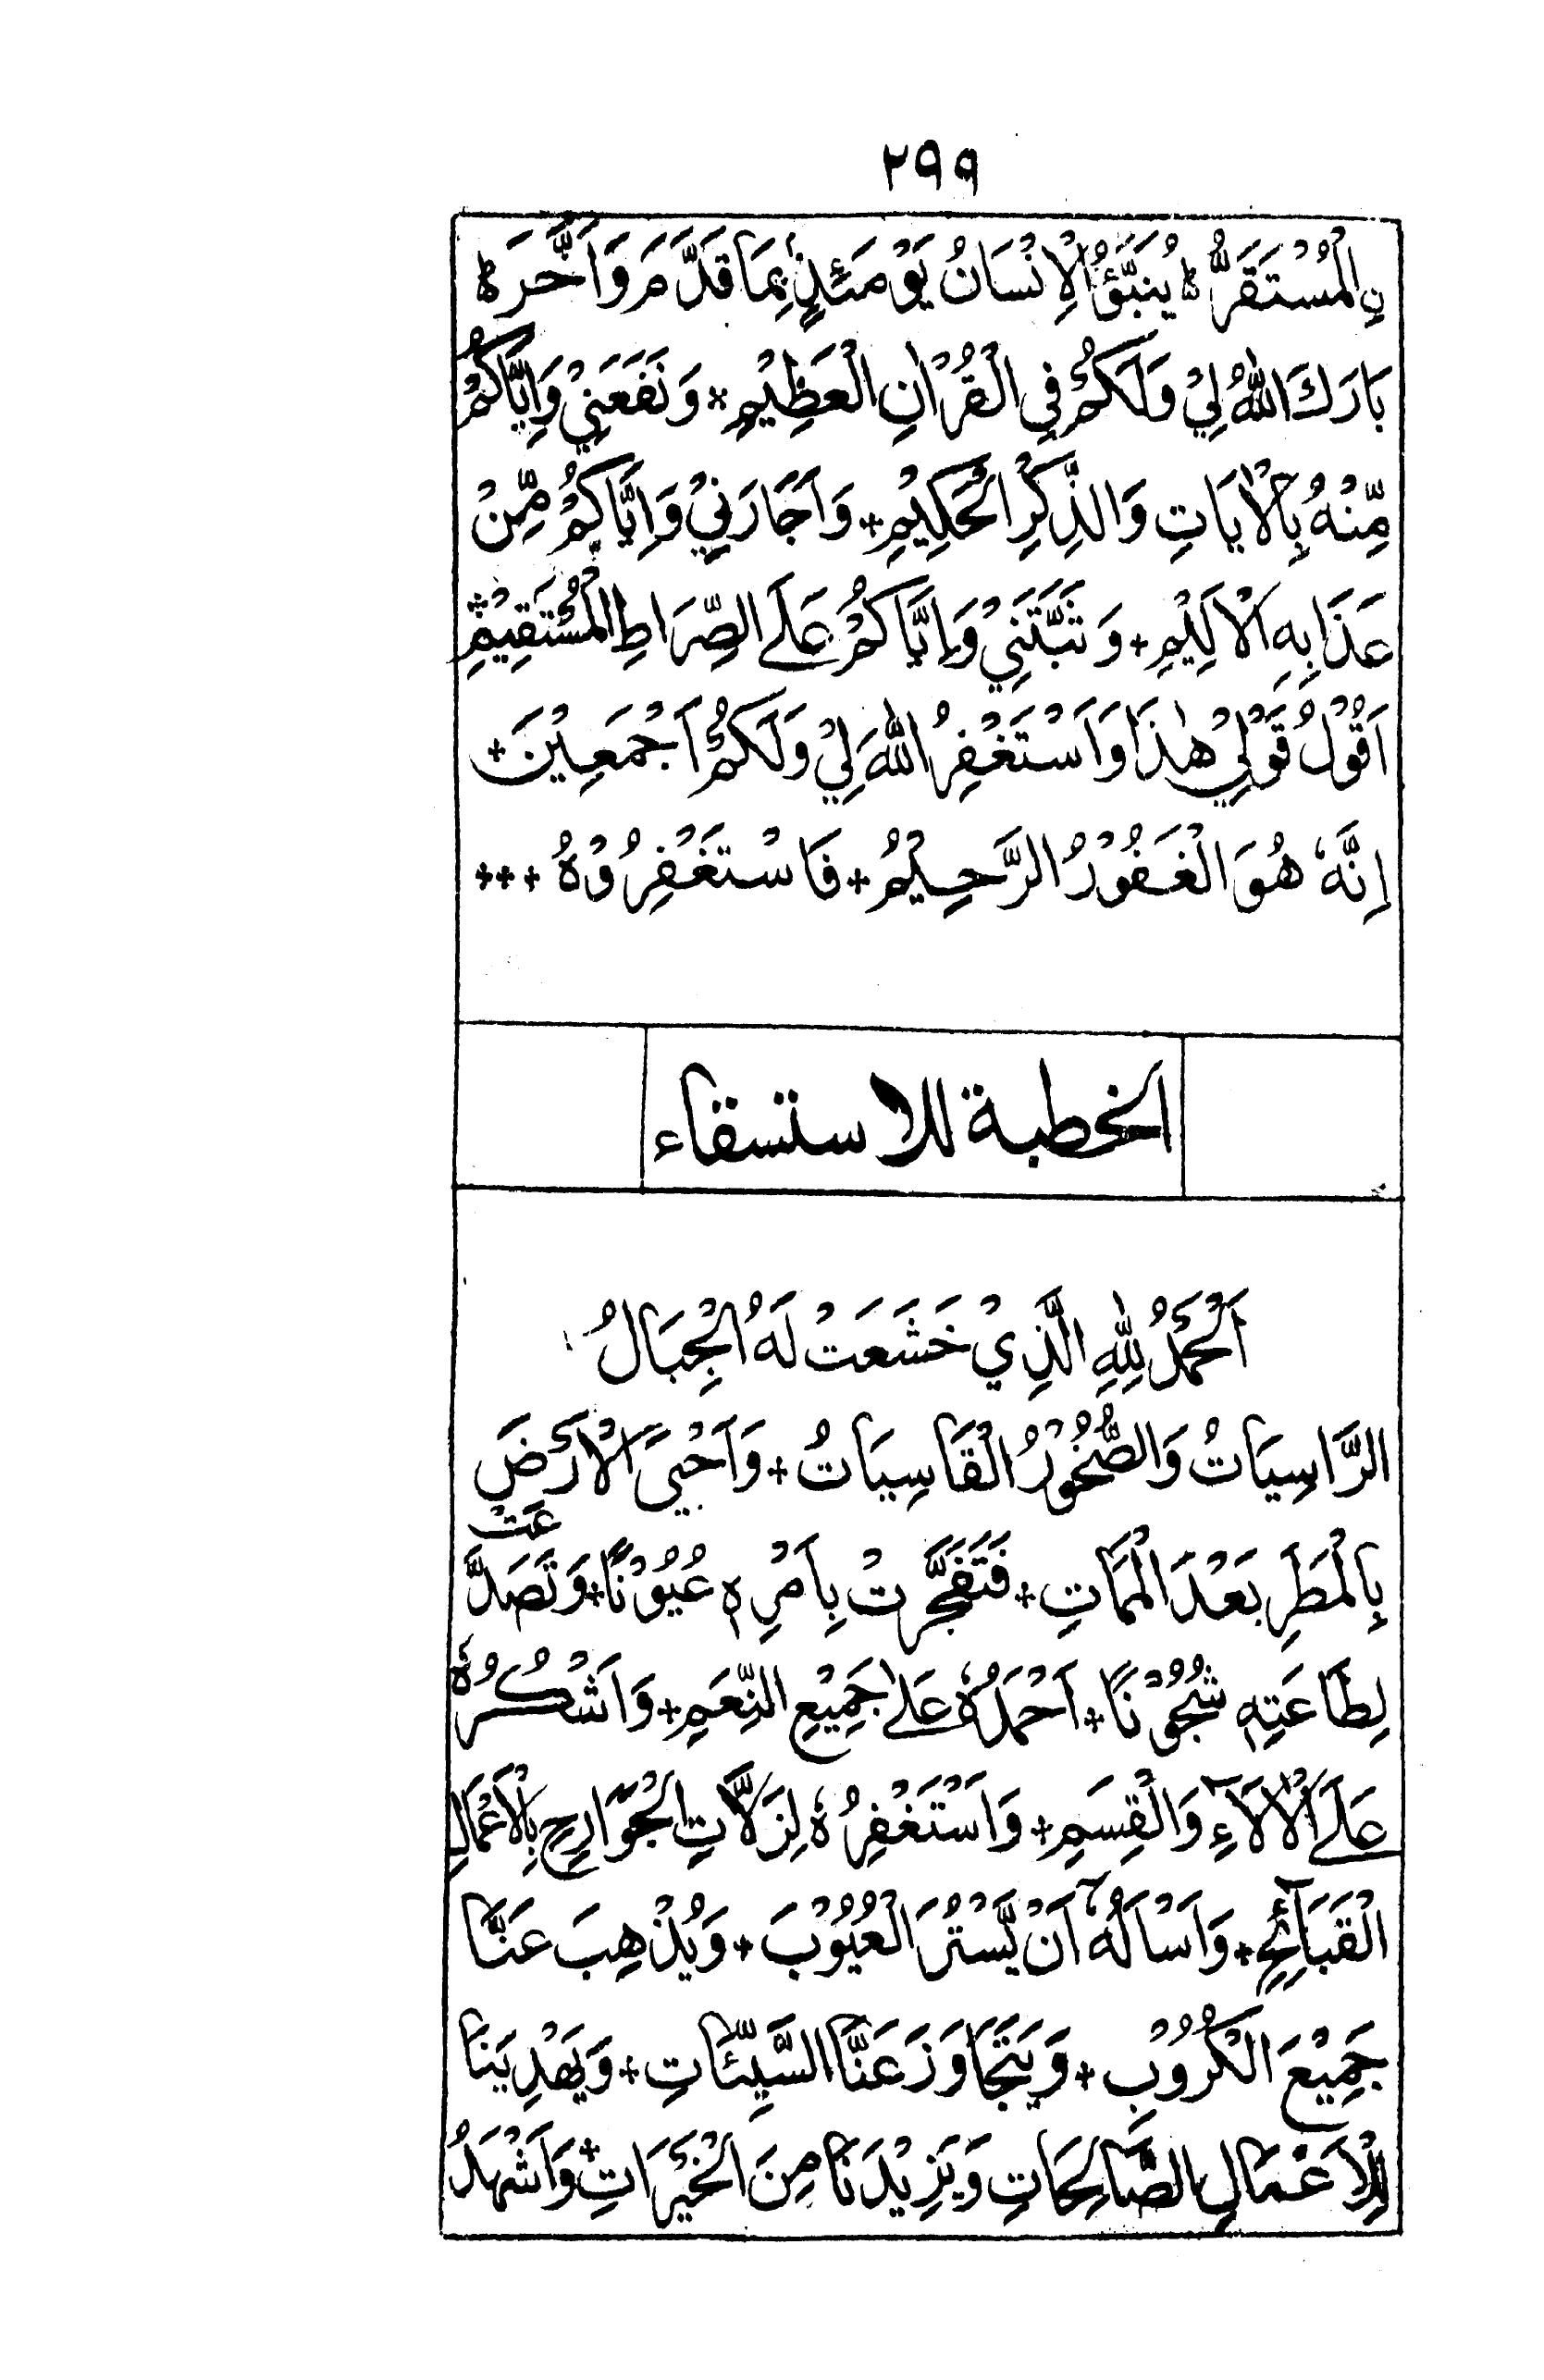 ٢٩٩
نِ الْمُسْتَقَرُّ ۃ يُنَبَّؤُ الْاِنْسَانُ يَوْمَئِذٍۭ بِمَا قَدَّمَ وَاَخَّرَ ۃ
بَارَكَ اللّٰهُ لِيْ وَلَكُمْ فِي الْقُرْاٰنِ الْعَظِيْمِ * وَنَفَعَنِيْ وَاِيَّاكُمْ
مِّنْهُ بِالْاٰيَاتِ وَالذِّكْرِ الْحَكِيْمِ + وَاَجَارَنِيْ وَاِيَّاكُمْ مِّنْ
عَذَابِهِ الْاَلِيْمِ + وَثَبَّتَنِيْ وَاِيَّاكُمْ عَلَى الصِّرَاطِ الْمُسْتَقِيْمِ +
اَقُوْلُ قَوْلِيْ هٰذَا وَاَسْتَغْفِرُ اللّٰهَ لِيْ وَلَكُمْ اَجْمَعِيْنَ +
اِنَّهٗ هُوَ الْغَفُوْرُ الرَّحِيْمُ + فَاسْتَغْفِرُوْهُ +++
الخطبة للاستسقاء
اَلْحَمْدُ لِلّٰهِ الَّذِيْ خَشَعَتْ لَهُ الْجِبَالُ
الرَّاسِيَاتُ وَالصُّخُوْرُ الْقَاسِيَاتُ + وَاَحْيَى الْاَرْضَ
بِالْمَطَرِ بَعْدَ الْمَمَاتِ + فَتَفَجَّرَتْ بِاَمْرِهٖ عُيُوْنًا + وَتَصَدَّعَتْ
لِطَاعَتِهٖ شُجُوْنًا + اَحْمَدُهٗ عَلٰى جَمِيْعِ النِّعَمِ + وَاَشْكُرُهٗ
عَلَى الْاٰلَآءِ وَالْقِسَمِ + وَاَسْتَغْفِرُهٗ لِزَلَّاتِ الْجَوَارِحِ بِالْاَعْمَالِ
الْقَبَآئِحِ + وَاَسْاَلُهٗٓ اَنْ يَّسْتُرَ الْعُيُوْبَ + وَيُذْهِبَ عَنَّا
جَمِيْعَ الْكُرُوْبِ + وَيَتَجَاوَزَ عَنَّا السَّيِّئَاتِ + وَيَهْدِيَنَا
لِلْاَعْمَالِ الصَّالِحَاتِ وَيَزِيْدَنَا مِنَ الْخَيْرَاتِ + وَاَشْهَدُ